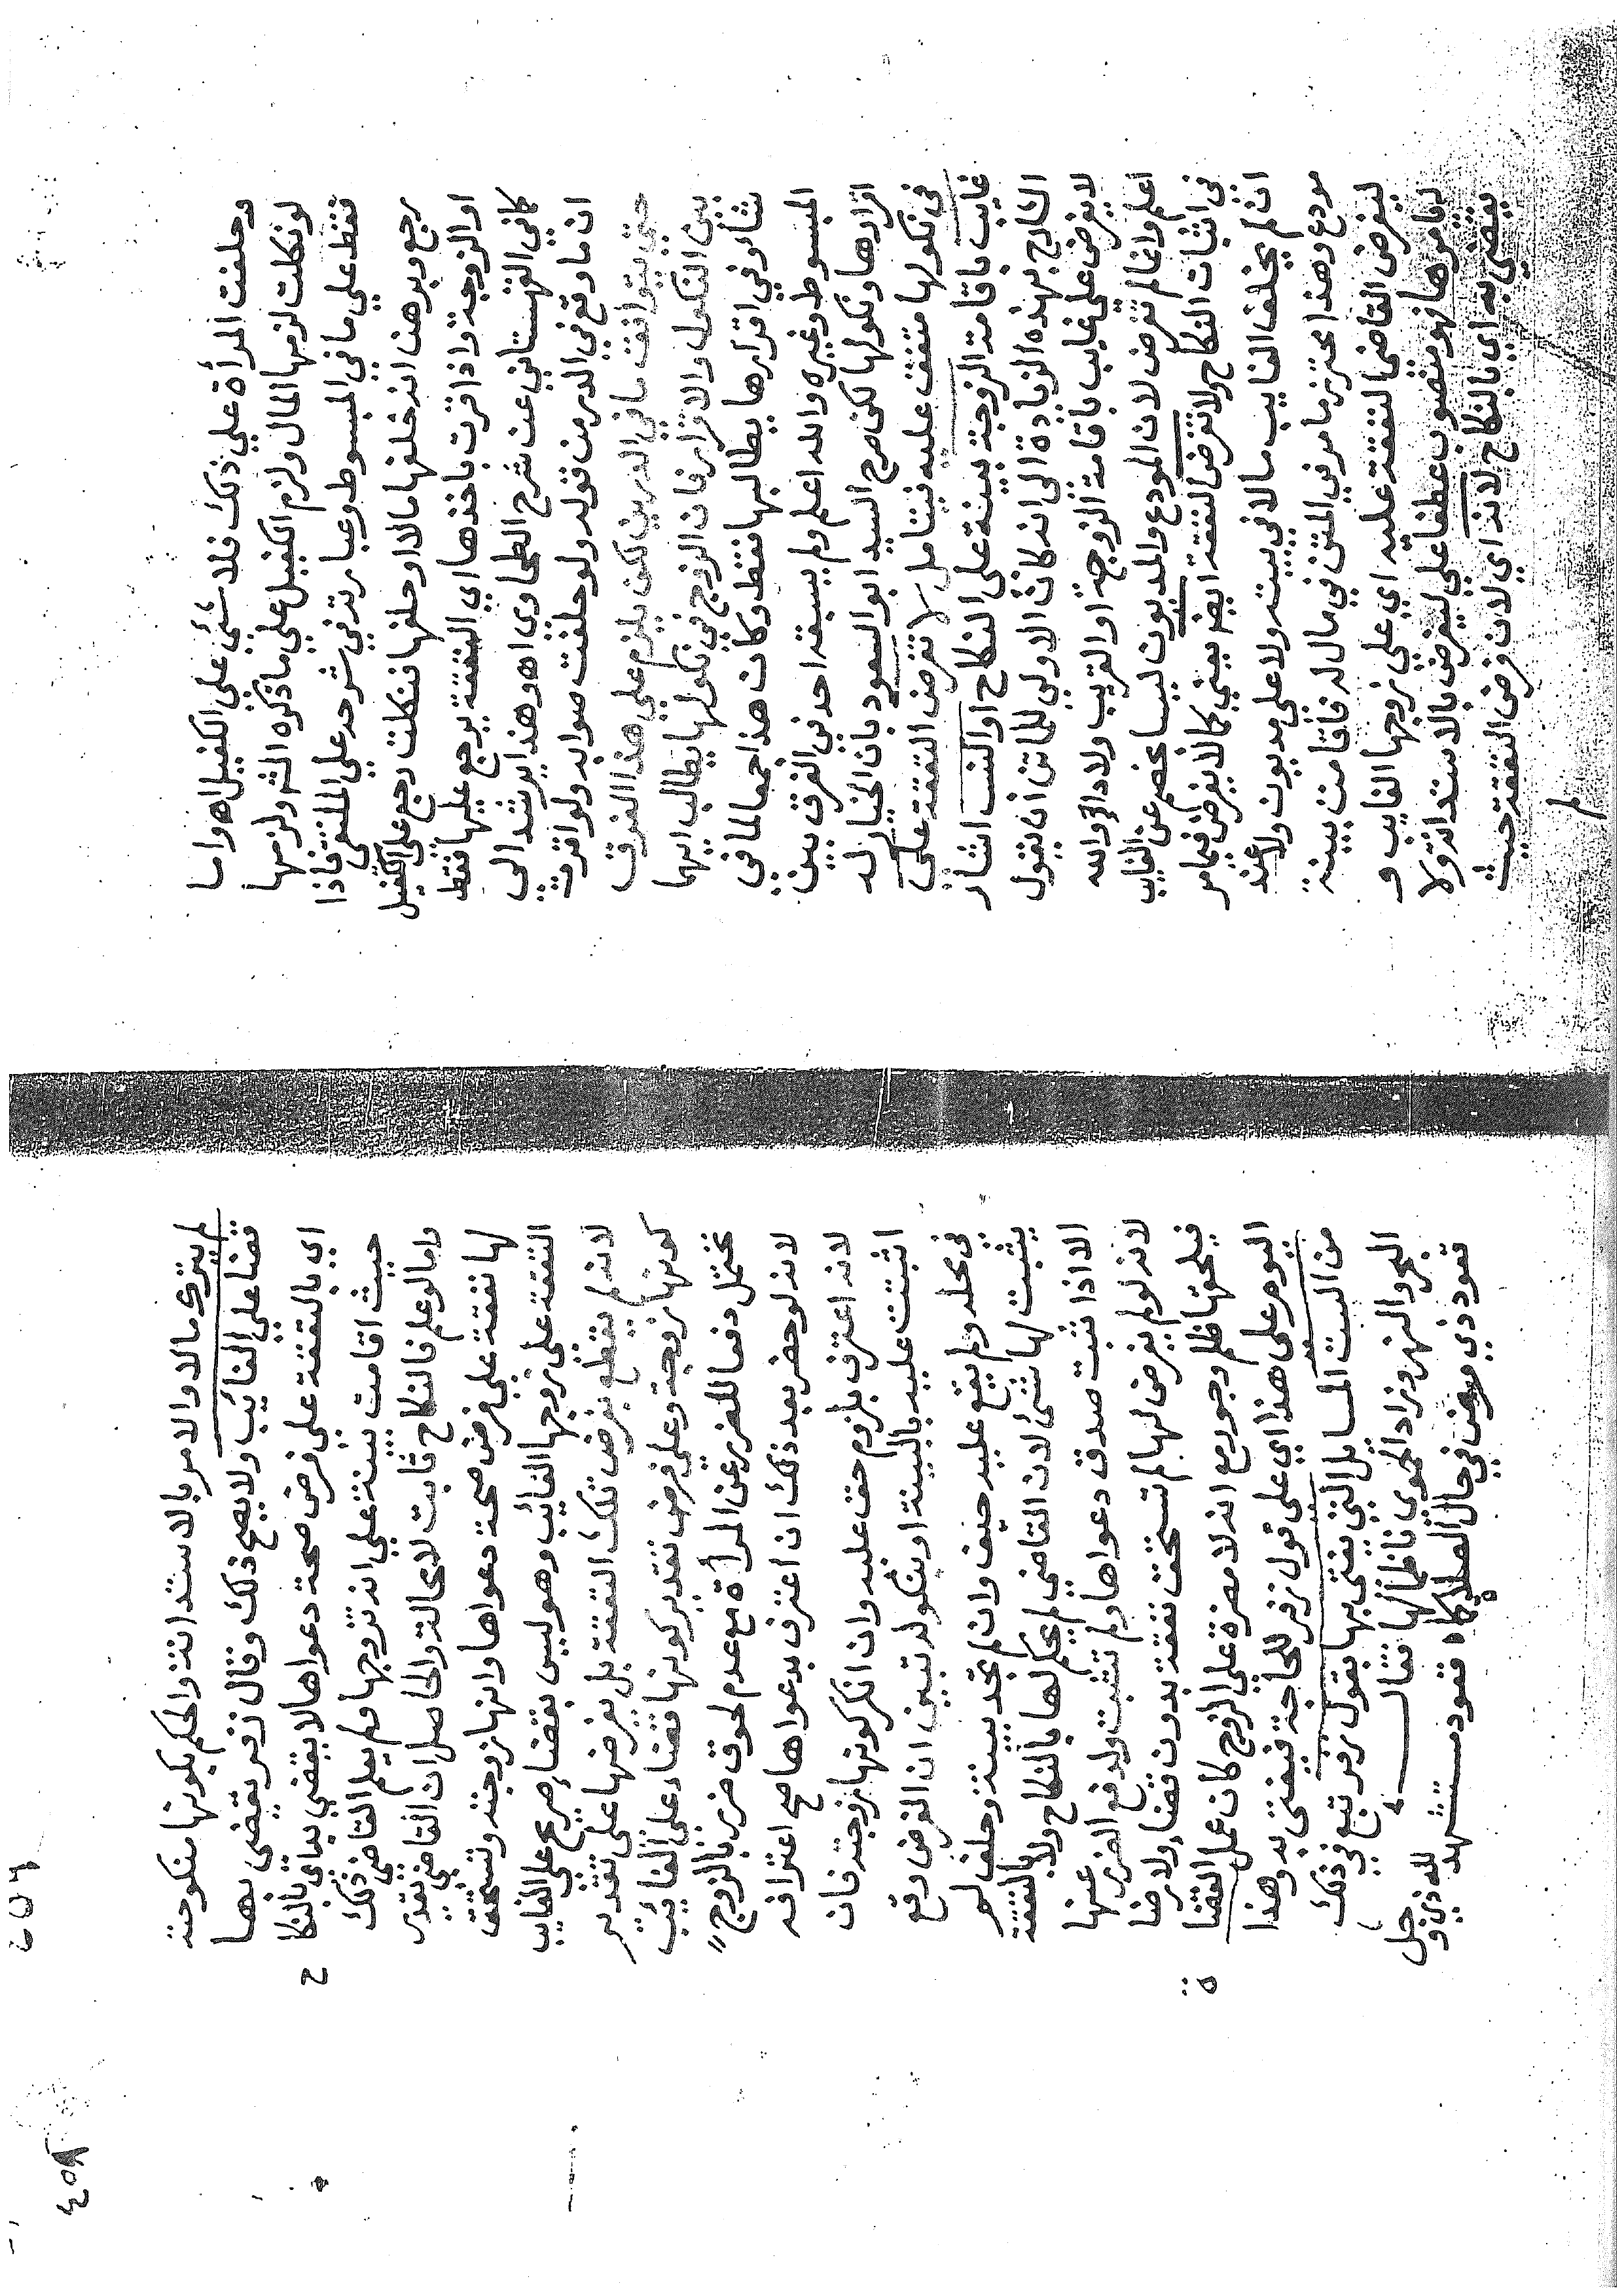 وحلفت المرأة علي ذلك فلا شئ علي الكفيل اه واما
لو نكلت لزمها المال ولزم الكفيل علي ما ذكره الشر ولزمها
فقط علي ما في المبسوط وعبارته في شرحه علي الملتقى فاذا
رجع وبرهن انه خلفها مالا او حلفها فنكلت رجع على الكفيل
او الزوجة واذا اقرت باخذها اي النفقة يرجع عليها فقط
كما في القهستاني عن شرح الطحاوي اه وهذا يرشد الى
ان ما وقع في الدر من قوله ولو حلفت صوابه ولو اقرت
حتي يتوافق ما في الدرين لكن يلزم علي هذا الفرق
بين النكول والاقرار فان الزوج في نكولها يطالب ايهما
شاء وفي اقرارها يطالبها فقط وكان هذا جمعا لما في
المبسوط وغيره والله اعلم ولم يسبقه احد في الفرق بين
اقرارها ونكولها لكن صرح السيد ابو السعود بان الخيار له
في نكولها متفق عليه فيتامل لا تفرض النفقة على
غايب باقامة الزوجة بينة على النكاح او النسب اشار
الشارح بهذه الزيادة الى انه كان الاولى للماتن ان يقول
لا يفرض على غايب باقامة الزوجة او القريب ولادا والله
اعلم وانما لم تفرض لان المودع والمديون ليسا بخصم عن الغايب
في اثبات النكاح ولا تفرض النفقة ايضا يعني كما لا يفرض فيما مر
ان لم يخلف الغايب مالا في بيته ولا على مديون ولا عند
مودع وهذا محترز ما مر في المتن في مال له فاقامت بينة
ليفرض القاضي النفقة عليه اي علي زوجها الغايب و
ليامرها فهو منصوب عطفا على ليفرض بالاستدانة ولا
يقضي به اي بالنكاح لانه اي لان فرض النفقة حيث
لم يترك مالا والامر بالاستدانة والحكم بكونها منكوحة
قضا علي الغائب ولا يصح ذلك وقال زفر يقضى بها
اي بالنفقة علي فرض صحة دعواها لا يقضي به اي بالنكاح
حيث اقامت بينة علي انه تزوجها ولم يعلم القاضي ذلك
واما لو علم فالنكاح ثابت لا محالة والحاصل ان القاضي يقدر
لها نفقة علي فرض صحة دعواها وانها زوجته وتستحق
النفقة على زوجها الغائب وهو ليس بقضاء صريح علي الغايب
لانه لم يقطع بفرض تلك النفقة بل يفرضها على تقدير
كونها زوجة وعلي فرض تقدير كونها قضاء على الغائب
تحتمل دفعا للضرر عن المرأة مع عدم لحوق ضرر بالزوج
لانه لو حضر بعد ذلك ان اعترف بدعواها صح اعترافه
لانه اعترف بلزوم حق عليه وان انكر كونها زوجته فان
اثبتت عليه بالبينة او بنكوله تبين ان الفرض وقع
في محله ولم يقع عليه حيف وان لم تجد بينة وحلف لم
يثبت لها شئ لان القاضي لم يحكم لها بالنكاح ولا بالنفقة
الا اذا ثبت صدق دعواها ولم تثبت ولدفع الضرر عنها
لانه لو لم يفرض لها لم تستحق نفقة بدون قضاء ولا رضا
فيلحقها ظلم وجور مع انه لا مضرة علي الزوج كان عمل القضاة
اليوم على هذا اي على قول زفر للحاجة فيفتى به وهذا
من الست المسايل التي يفتى بها بقول زفر تبع في ذلك
البحر والنهر وزاد الحموي ناظما لها فقال
قعود ذي مرض في حال الصلاة كما قعود مستشهد لله ذي وجل